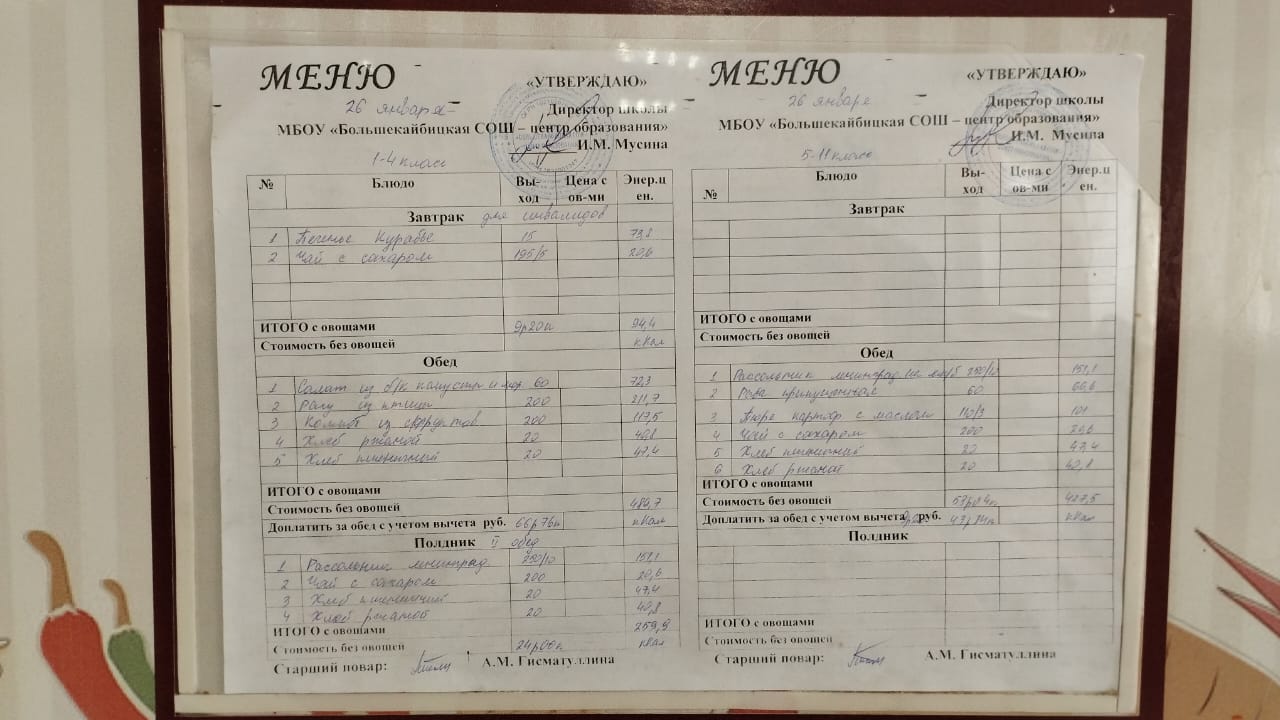 МЕНЮ
«УТВЕРЖДАЮ»
26 января
Директор школы
МБОУ «Большекайбицкая СОШ – центр образования»
И.М. Мусина
1-4 класс
№ Блюдо Вы-ход Цена с ов-ми Энер.ц ен.
Завтрак для инвалидов
1 Печенье Курабье 15 73,8
2 Чай с сахаром 195/5 20,6
ИТОГО с овощами 9р20к 94,4
Стоимость без овощей кКал
Обед
1 Салат из б/к капусты и мор. 60 72,3
2 Рагу из птицы 200 211,7
3 Компот из сухофруктов 200 117,5
4 Хлеб ржаной 20 40,8
5 Хлеб пшеничный 20 47,4
ИТОГО с овощами
Стоимость без овощей
Доплатить за обед с учетом вычета руб. 66р76к кКал
Полдник II обед
1 Рассольник ленинград. 250/10 151,1
2 Чай с сахаром 200 20,6
3 Хлеб пшеничный 20 47,4
4 Хлеб ржаной 20 40,8
ИТОГО с овощами 259,9
Стоимость без овощей 24р00к кКал
Старший повар: А.М. Гисматуллина
МЕНЮ
«УТВЕРЖДАЮ»
26 января
Директор школы
МБОУ «Большекайбицкая СОШ – центр образования»
И.М. Мусина
5-11 класс
№ Блюдо Вы-ход Цена с ов-ми Энер.ц ен.
Завтрак
ИТОГО с овощами
Стоимость без овощей
Обед
1 Рассольник ленинград. 250/10 151,1
2 60 66,6
3 Пюре картоф с маслом 101
4 Чай с сахаром 200 20,6
5 Хлеб пшеничный 20 47,4
6 Хлеб ржаной 20 40,8
ИТОГО с овощами
Стоимость без овощей 427,5
Доплатить за обед с учетом вычета руб. кКал
Полдник
ИТОГО с овощами
Стоимость без овощей
Старший повар: А.М. Гисматуллина